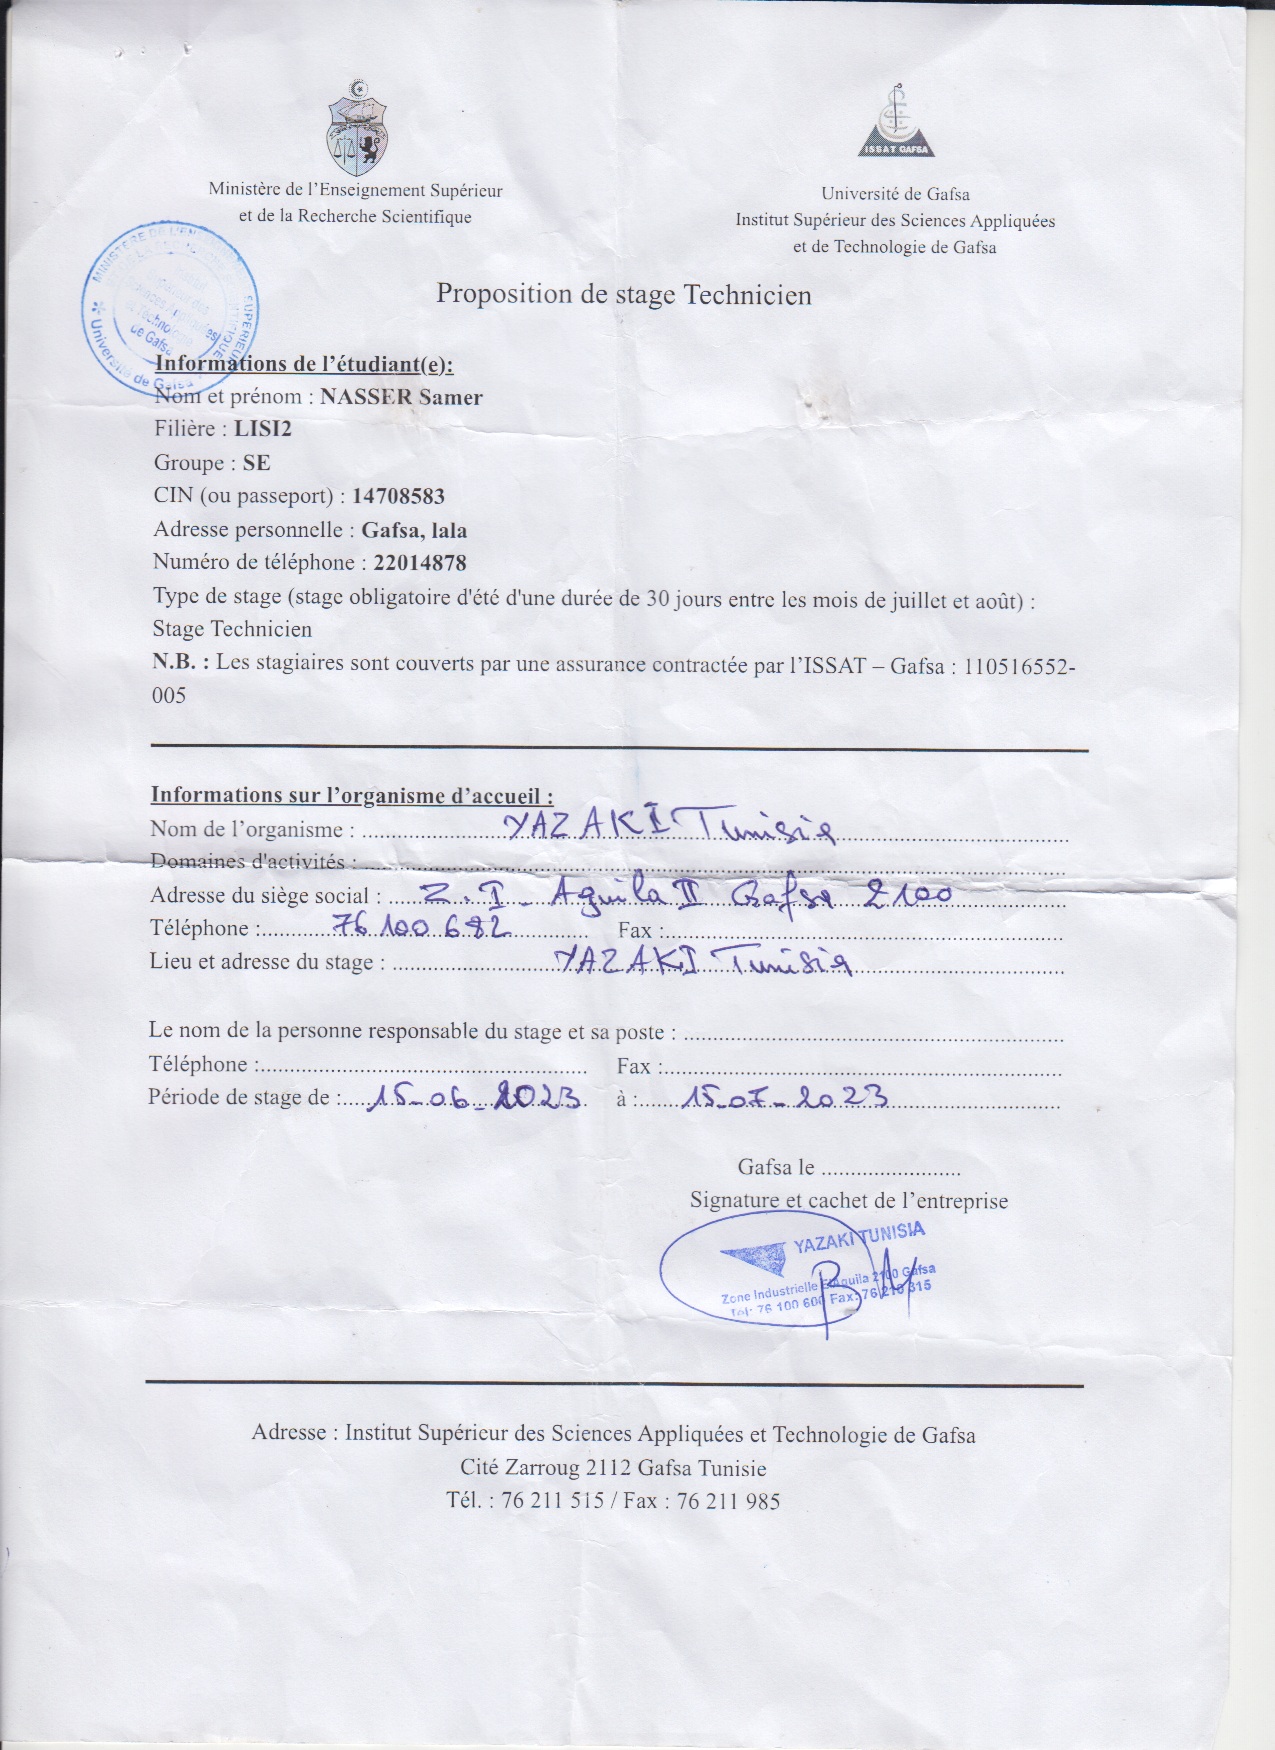 ISSAT GAFSA
Ministère de l'Enseignement Supérieur
et de la Recherche Scientifique
Université de Gafsa
Institut Supérieur des Sciences Appliquées
et de Technologie de Gafsa
Université de Gafsa
de Gafsa
Proposition de stage Technicien
Informations de l'étudiant(e):
Nom et prénom : NASSER Samer
Filière : LISI2
Groupe : SE
CIN (ou passeport) : 14708583
Adresse personnelle : Gafsa, lala
Numéro de téléphone : 22014878
Type de stage (stage obligatoire d'été d'une durée de 30 jours entre les mois de juillet et août) :
Stage Technicien
N.B. : Les stagiaires sont couverts par une assurance contractée par l'ISSAT – Gafsa : 110516552-
005
Informations sur l'organisme d'accueil :
Nom de l'organisme : YAZAKI Tunisia
Domaines d'activités :
Adresse du siège social : Z.I. Aguila II Gafsa 2100
Téléphone : 76 100 682 Fax :
Lieu et adresse du stage : YAZAKI Tunisia
Le nom de la personne responsable du stage et sa poste :
Téléphone : Fax :
Période de stage de : 15-06-2023 à : 15-07-2023
Gafsa le
Signature et cachet de l'entreprise
YAZAKI TUNISIA
Zone Industrielle 2100 Gafsa
Tel: 76 100 600 Fax: 76 210 315
Adresse : Institut Supérieur des Sciences Appliquées et Technologie de Gafsa
Cité Zarroug 2112 Gafsa Tunisie
Tél. : 76 211 515 / Fax : 76 211 985